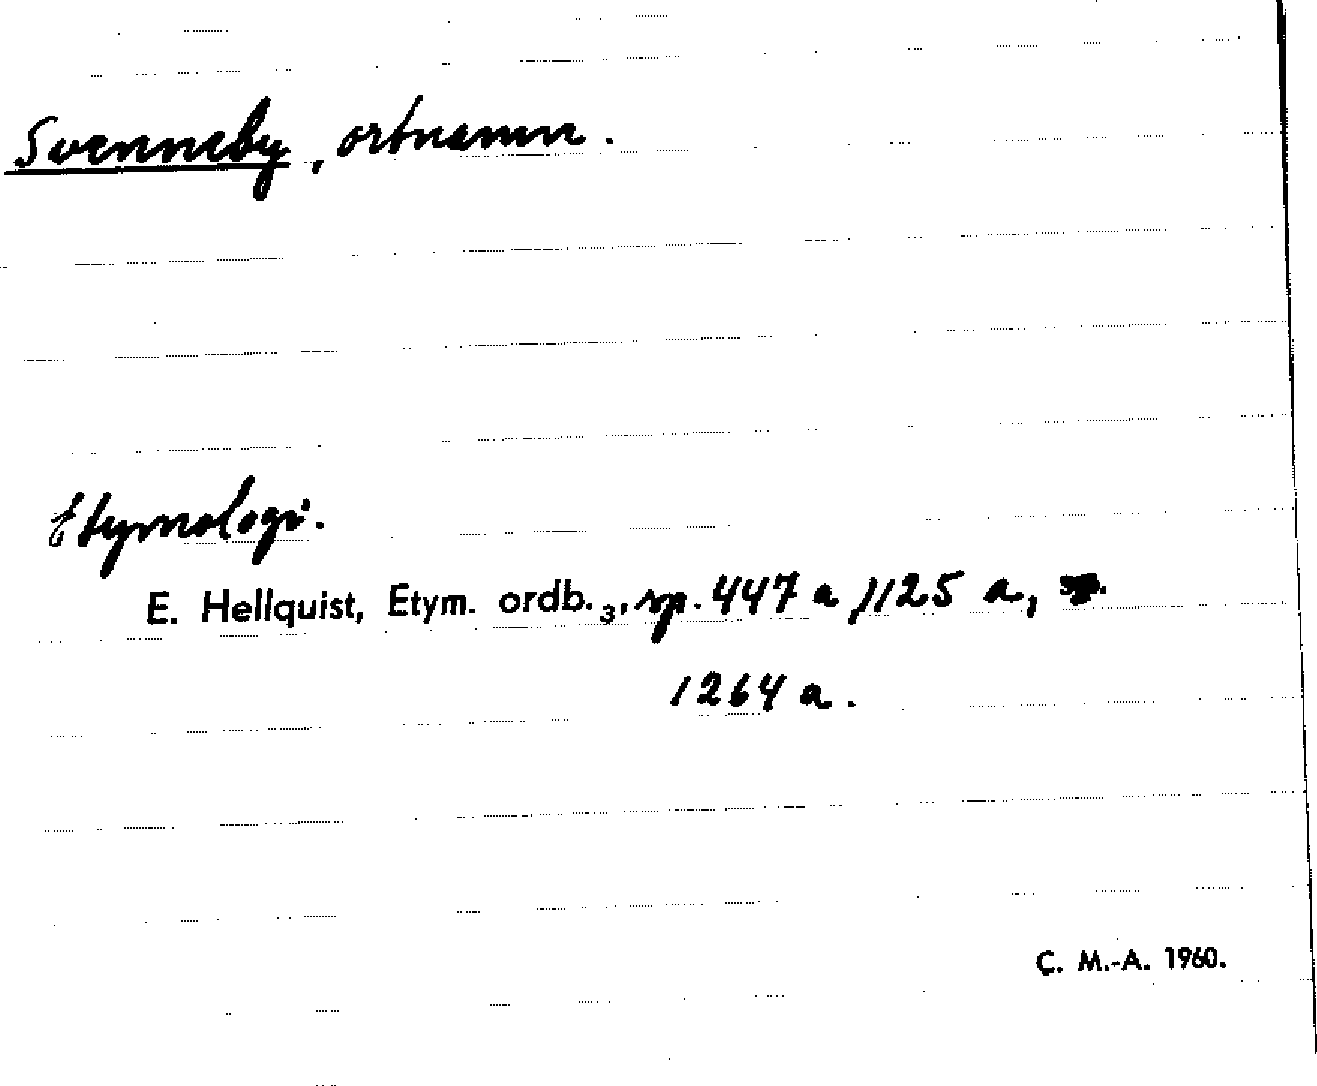 Svenneby, ortnamn.
Etymologi.
E. Hellquist, Etym. ordb.₃, sp. 447 a, 1125 a,
1264 a.
C. M.-A. 1960.